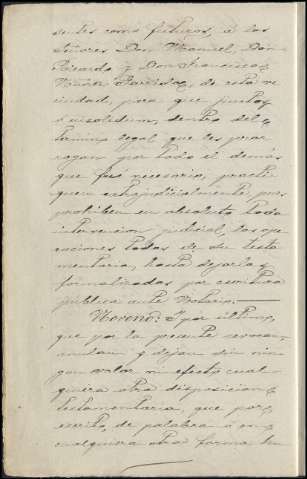 sentes como futuros, á los
Señores Don Manuel, Don
Ricardo y Don Francisco
de esta ve
cindad, para que juntos
é insolidum, dentro del
termino legal que les pror
rogan por todo el demás
que fue necesario, practi
quen extrajudicialmente, pues
prohiben en absoluto toda
intervencion judicial, las ope
raciones todas de su testa
mentaria, hasta dejarlas
formalizadas por escritura
pública ante Notario.
Noveno: Y por último,
que por la presente revocan,
anulan y dejan sin nin
gun valor ni efecto cual
quiera otra disposicion
testamentaria, que por
escrito, de palabra ó en
cualquiera otra forma hu